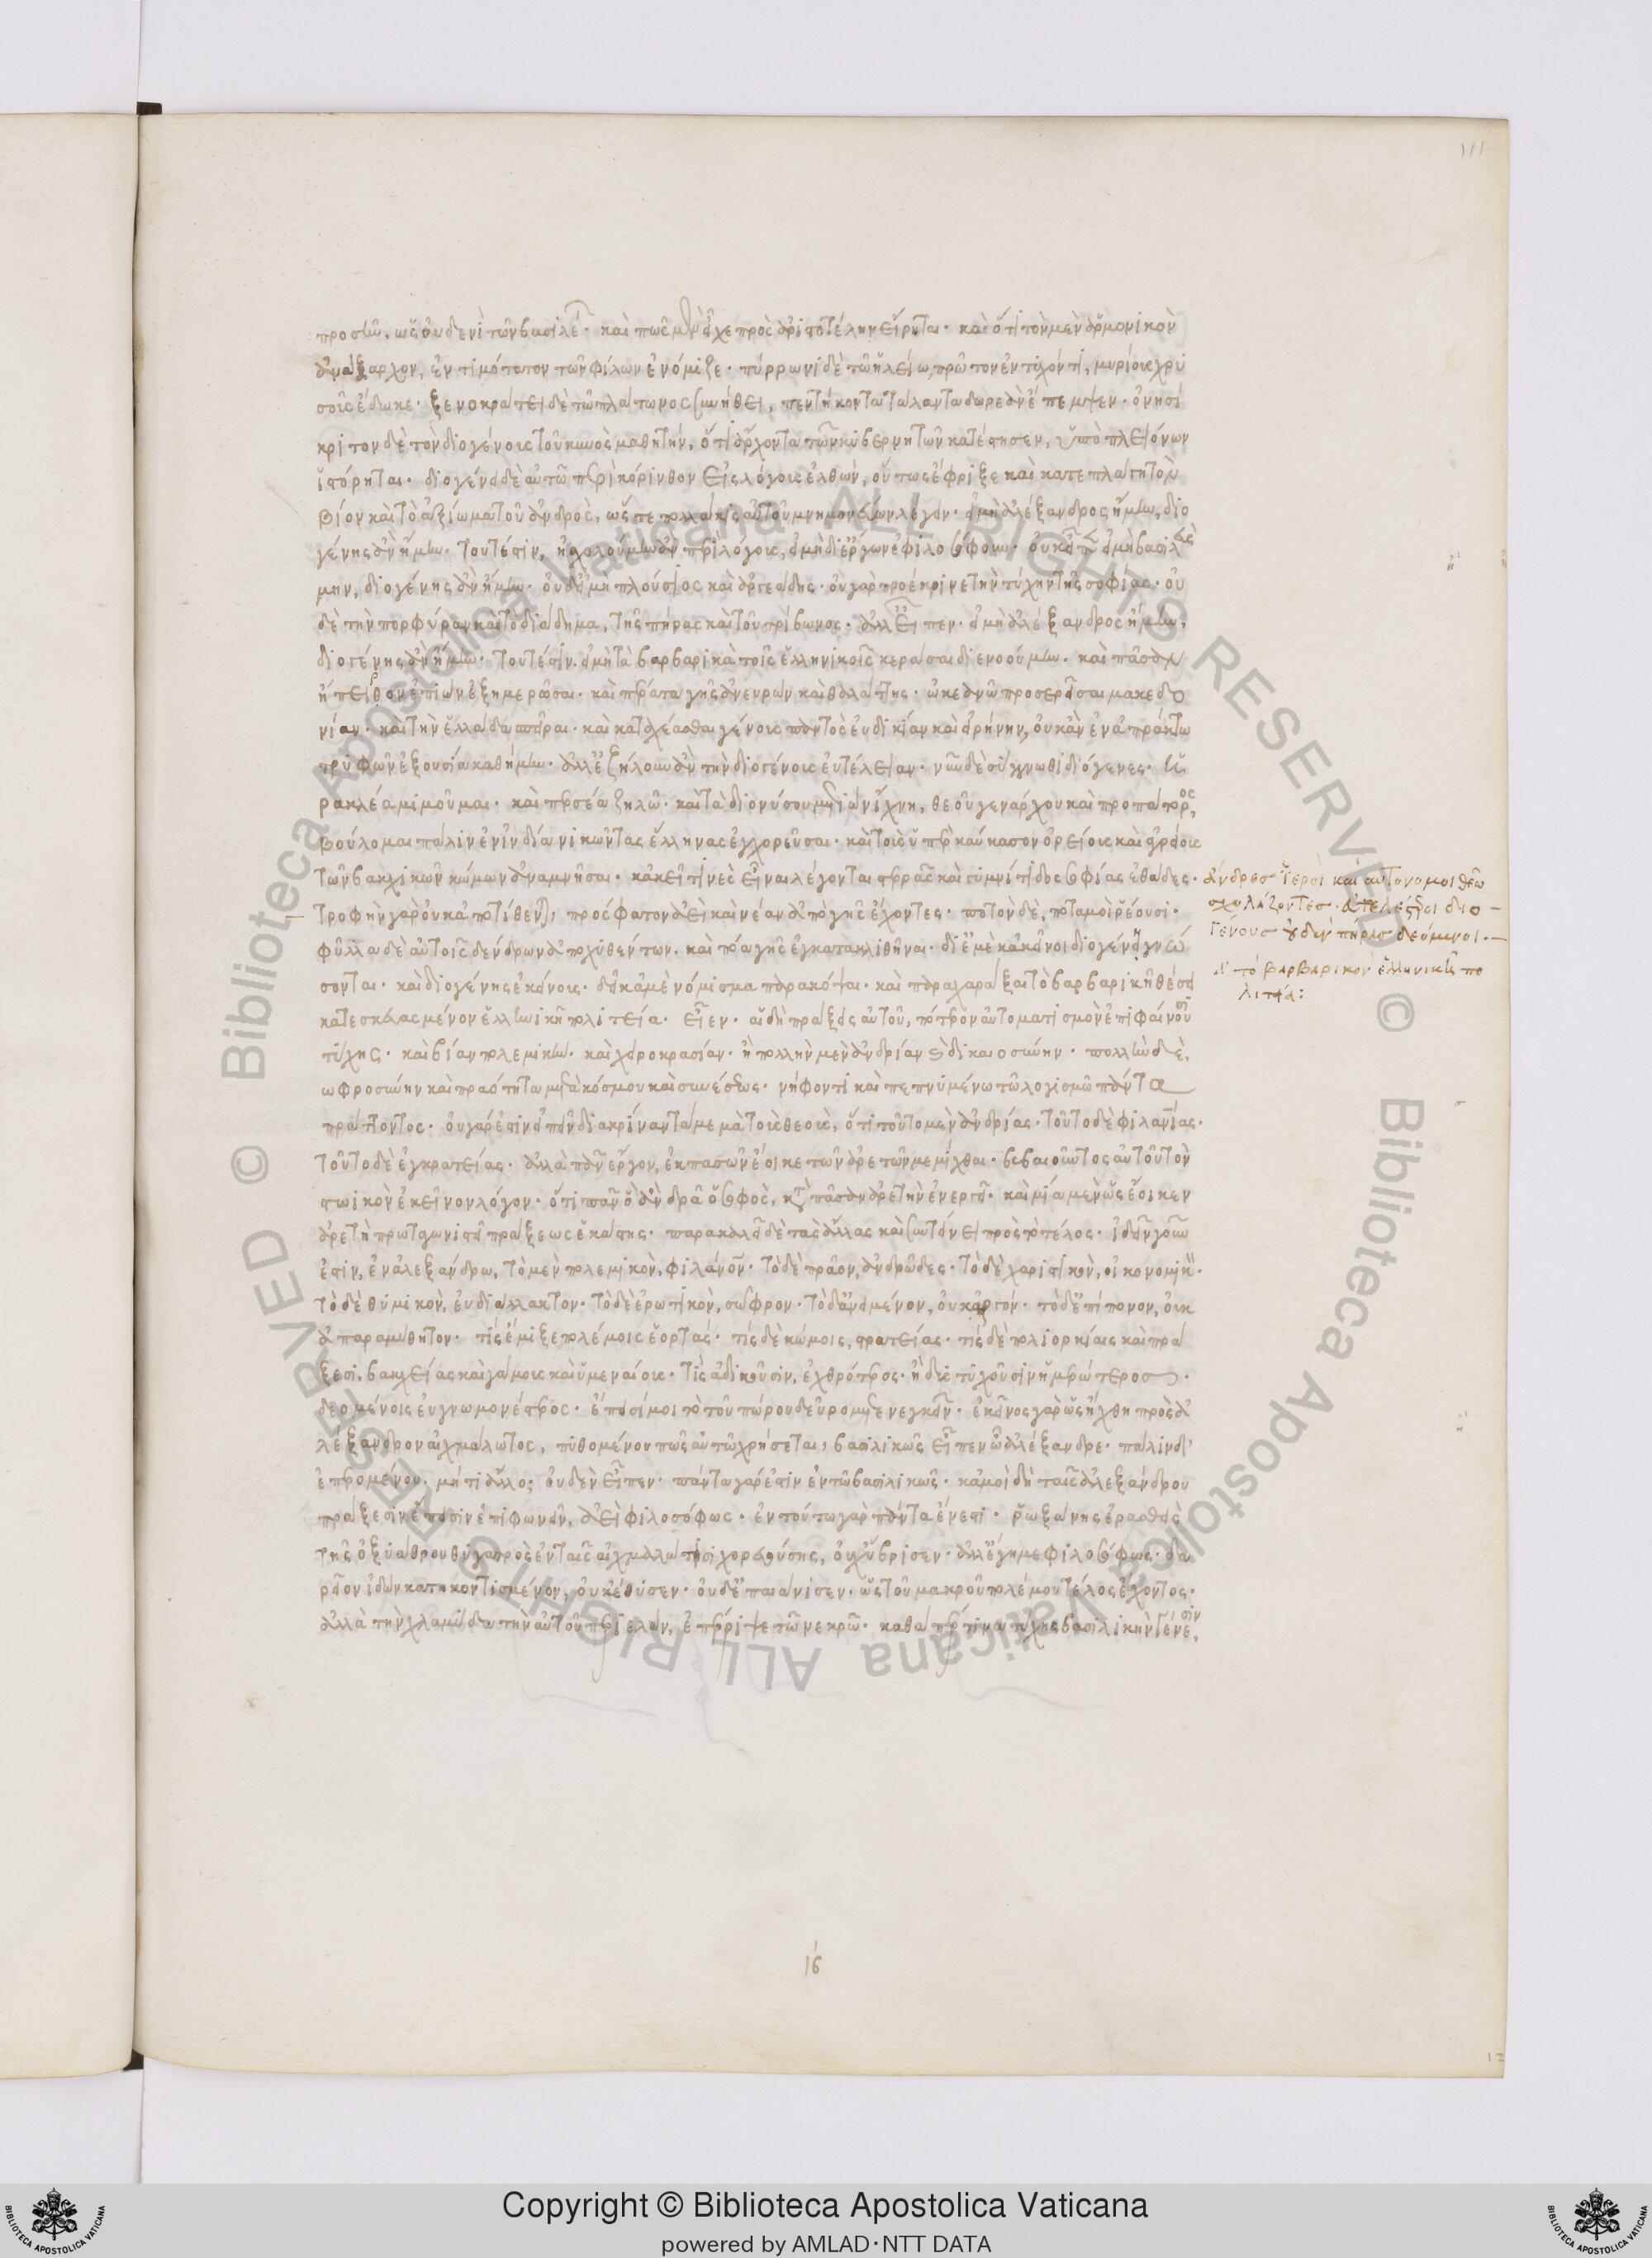 111
προσὶν, ὡς οὐδενὶ τῶν βασιλέων· καὶ πῶς μὲν εἶχε πρὸς ἀριστοτέλην εἴρηται· καὶ ὅτι τὸν μὲν ἁρμονικὸν
ἀνάξαρχον, ἐντιμότατον τῶν φίλων ἐνόμιζε· πύρρωνι δὲ τῶ ἠλείω, πρῶτον ἐντυχόντι, μυρίους χρυ
σοῦς ἔδωκε· ξενοκράτει δὲ τῶ πλάτωνος συνήθει, πεντήκοντα τάλαντα δωρεὰν ἔπεμψεν· ὀνησί
κριτον δὲ τὸν διογένους τοῦ κυνὸς μαθητὴν, ὅτι ἄρχοντα τῶν κυβερνητῶν κατέστησεν, ὑπὸ πλειόνων
ἱστόρηται· διογένει δὲ αὐτῶ περὶ κόρινθον εἰς λόγους ἐλθὼν, οὕτως ἔφριξε καὶ κατεπλάγη τὸν
βίον καὶ τὸ ἀξίωμα τοῦ ἀνδρὸς, ὥστε πολλάκις αὐτοῦ μνημονεύων λέγειν· εἰ μὴ ἀλέξανδρος ἤμην, διο
γένης ἂν ἤμην· τουτέστιν, ἠσχολούμην ἂν περὶ λόγους, εἰ μὴ δι' ἔργων ἐφιλοσόφουν· οὐκ εἶπεν εἰ μὴ βασιλεὺς
ἤμην, διογένης ἂν ἤμην· οὐδ' εἰ μὴ πλούσιος καὶ ἀργεάδης· οὐ γὰρ προέκρινε τὴν τύχην τῆς σοφίας· οὐ
δὲ τὴν πορφύραν καὶ τὸ διάδημα, τῆς πήρας καὶ τοῦ τρίβωνος· ἀλλ' εἶπεν· εἰ μὴ ἀλέξανδρος ἤμην,
διογένης ἂν ἤμην· τουτέστιν· εἰ μὴ τὰ βαρβαρικὰ τοῖς ἑλληνικοῖς κεράσαι διενοούμην· καὶ πᾶσαν
ἤπειρον ἐπιὼν ἐξημερῶσαι· καὶ πέρατα γῆς ἀνερευνῶν καὶ θαλάττης· ὠκεανῶ προσερεῖσαι μακεδο
νίαν· καὶ τὴν ἑλλάδα σπεῖραι· καὶ καταχέασθαι γένους παντὸς εὐδικίαν καὶ εἰρήνην, οὐκ ἂν ἐν ἀπράκτω
τρυφῶν ἐξουσία καθήμην· ἀλλ' ἐζήλουν ἂν τὴν διογένους εὐτέλειαν· νῦν δὲ σύγγνωθι διόγενες· ἡ
ρακλέα μιμοῦμαι· καὶ περσέα ζηλῶ· καὶ τὰ διονύσου μετιὼν ἴχνη, θεοῦ γενάρχου καὶ προπάτορος,
βούλομαι πάλιν ἐν ἰνδία νικῶντας ἕλληνας ἐγχορεῦσαι· καὶ τοὺς ὑπὲρ καύκασον ὀρείους καὶ ἀγρίους
τῶν βακχικῶν κώμων ἀναμνῆσαι· κἀκεῖ τινὲς εἶναι λέγονται στερρᾶς καὶ γυμνίτιδος σοφίας ἐθάδες·
τροφὴν γὰρ οὐκ ἀποτίθενται, πρόσφατον ἀεὶ καὶ νέαν ἀπὸ γῆς ἔχοντες· ποτὸν δὲ, ποταμοὶ ῥέουσι·
φύλλα δὲ αὐτοῖς δένδρων ἀποχυθέντων· καὶ πόα γῆς ἐγκατακλιθῆναι· δι' ἐμὲ κἀκεῖνοι διογένη γνώ
σονται· καὶ διογένης ἐκείνους· δεῖ κἀμὲ νόμισμα παρακόψαι· καὶ παραχαράξαι τὸ βαρβαρικῆ θέσει
κατεσκευασμένον ἑλληνικῆ πολιτεία· εἶεν· αἱ δὴ πράξεις αὐτοῦ, πότερον αὐτοματισμὸν ἐπιφαίνουσι
τύχης· καὶ βίαν πολεμικὴν· καὶ χειροκρασίαν· ἢ πολλὴν μὲν ἀνδρίαν καὶ δικαιοσύνην· πολλὴν δὲ,
σωφροσύνην καὶ πραότητα μετὰ κόσμου καὶ συνέσεως· νήφοντι καὶ πεπνυμένω τῶ λογισμῶ πάντα
πράττοντος· οὐ γάρ ἐστιν εἰπεῖν διακρίναντα με μὰ τοὺς θεοὺς, ὅτι τοῦτο μὲν ἀνδρίας· τοῦτο δὲ φιλανθρωπίας·
τοῦτο δὲ ἐγκρατείας· ἀλλὰ πᾶν ἔργον, ἐκ πασῶν ἔοικε τῶν ἀρετῶν μεμίχθαι· βεβαιοῦντος αὐτοῦ τὸν
στωικὸν ἐκεῖνον λόγον· ὅτι πᾶν ὃ ἂν δρᾶ ὁ σοφὸς, κατὰ πᾶσαν ἀρετὴν ἐνεργεῖ· καὶ μία μὲν ὡς ἔοικεν
ἀρετὴ πρωταγωνιστεῖ πράξεως ἑκάστης· παρακαλεῖ δὲ τὰς ἄλλας καὶ συντείνει πρὸς τὸ τέλος· ἰδεῖν γοῦν
ἐστιν, ἐν ἀλεξάνδρω, τὸ μὲν πολεμικὸν, φιλάνθρωπον· τὸ δὲ πρᾶον, ἀνδρῶδες· τὸ δὲ χαριστικὸν, οἰκονομικόν·
τὸ δὲ θυμικὸν, εὐδιάλλακτον· τὸ δὲ ἐρωτικὸν, σῶφρον· τὸ δ' ἀνειμένον, οὐκ ἀργόν· τὸ δ' ἐπίπονον, οὐκ
ἀπαραμύθητον· τίς ἔμιξε πολέμοις ἑορτάς· τίς δὲ κώμοις, στρατείας· τίς δὲ πολιορκίαις καὶ πρά
ξεσι, βακχείας καὶ γάμους καὶ ὑμεναίους· τίς ἀδικοῦσιν, ἐχθρότερος· ἢ δυστυχοῦσιν ἡμερώτερος·
δεομένοις εὐγνωμονέστερος· ἔπεισί μοι τὸ τοῦ πώρου δεῦρο μετενεγκεῖν· ἐκεῖνος γὰρ ὡς ἤχθη πρὸς ἀ
λέξανδρον αἰχμάλωτος, πυθομένου πῶς αὐτῶ χρήσεται, βασιλικῶς εἶπεν ὦ ἀλέξανδρε· πάλιν δ'
ἐπερομένου, μή τι ἄλλο; οὐδὲν εἶπεν· πάντα γάρ ἐστιν ἐν τῶ βασιλικῶς· κἀμοὶ δὴ ταῖς ἀλεξάνδρου
πράξεσιν ἔπεισιν ἐπιφωνεῖν, ἀεὶ φιλοσόφως· ἐν τούτω γὰρ πάντα ἔνεστι· ῥωξάνης ἐρασθεὶς
τῆς ὀξυάθρου θυγατρὸς ἐν ταῖς αἰχμαλωτίσι χορευούσης, οὐχ ὕβρισεν· ἀλλ' ἔγημε φιλοσόφως· δα
ρεῖον ἰδὼν κατηκοντισμένον, οὐκ ἔθυσεν· οὐδ' ἐπαιάνισεν, ὡς τοῦ μακροῦ πολέμου τέλος ἔχοντος·
ἀλλὰ τὴν χλαμύδα τὴν αὐτοῦ περιελὼν, ἐπέρριψε τῶ νεκρῶ· καθάπερ τινα τύχης βασιλικὴν γένεσιν,
ἄνδρες ἱεροὶ καὶ αὐτόνομοι θεῶ
σχολάζοντες· εὐτελέστεροι διο
γένους οὐδὲν πήρας δεόμενοι·
τὸ βαρβαρικὸν ἑλληνικῆ πο
λιτεία:
16
Copyright © Biblioteca Apostolica Vaticana
powered by AMLAD·NTT DATA